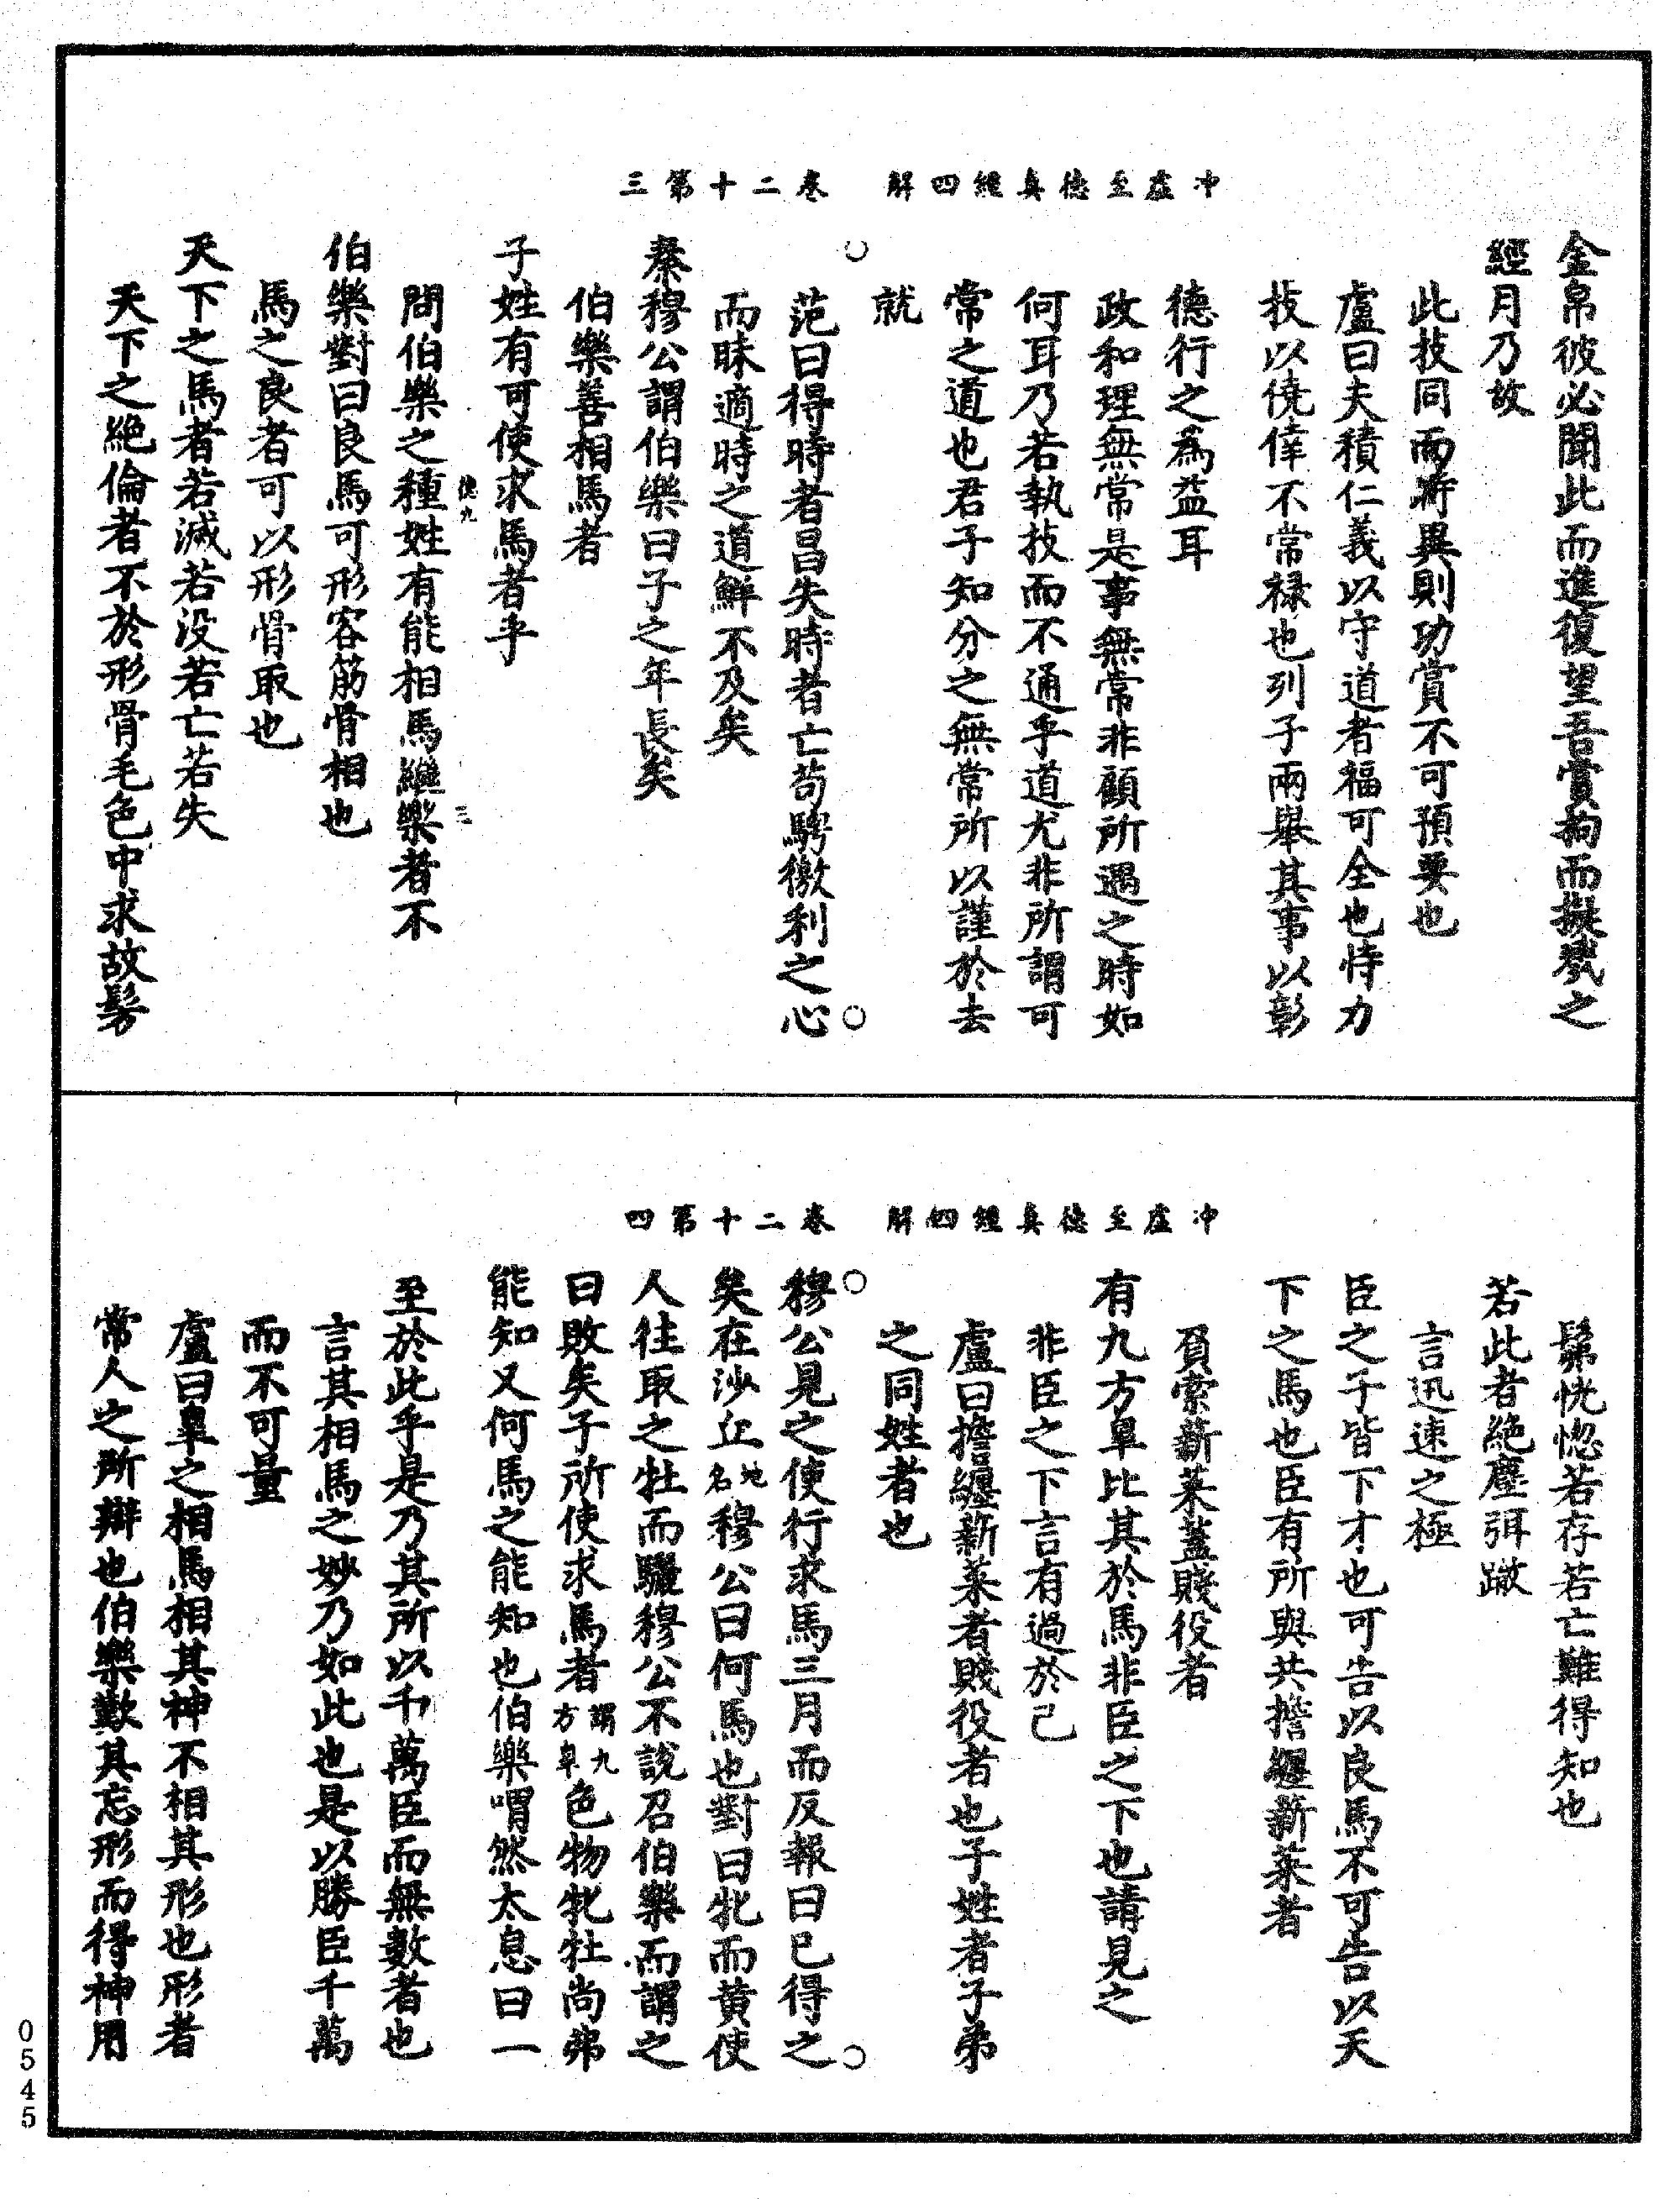 金帛彼必聞此而進復望吾賞拘而擬戮之
經月乃故
此技同而將異則功賞不可預要也
盧曰夫積仁義以守道者福可全也恃力
技以僥倖不常禄也列子兩舉其事以彰
德行之為益耳
政和理無常是事無常非顧所遇之時如
何耳乃若執技而不通乎道尤非所謂可
常之道也君子知分之無常所以謹於去
就
沖虛至德真經四解　卷二十第三
范曰得時者昌失時者亡苟騁徼利之心
而昧適時之道鮮不及矣
秦穆公謂伯樂曰子之年長矣
伯樂善相馬者
子姓有可使求馬者乎
德九　三
問伯樂之種姓有能相馬繼樂者不
伯樂對曰良馬可形容筋骨相也
馬之良者可以形骨取也
天下之馬者若滅若没若亡若失
天下之絶倫者不於形骨毛色中求故髣
髴恍惚若存若亡難得知也
若此者絶塵弭蹴
言迅速之極
臣之子皆下才也可告以良馬不可告以天
下之馬也臣有所與共擔纆薪菜者
負索薪菜蓋賤役者
有九方臯比其於馬非臣之下也請見之
非臣之下言有過於己
盧曰擔纆薪菜者賤役者也子姓者子弟
之同姓者也
沖虛至德真經四解　卷二十第四
穆公見之使行求馬三月而反報曰已得之
矣在沙丘地名穆公曰何馬也對曰牝而黃使
人往取之牡而驪穆公不說召伯樂而謂之
曰敗矣子所使求馬者謂九方臯色物牝牡尚弗
能知又何馬之能知也伯樂喟然太息曰一
至於此乎是乃其所以千萬臣而無數者也
言其相馬之妙乃如此也是以勝臣千萬
而不可量
盧曰臯之相馬相其神不相其形也形者
常人之所辯也伯樂歎其忘形而得神用
0545